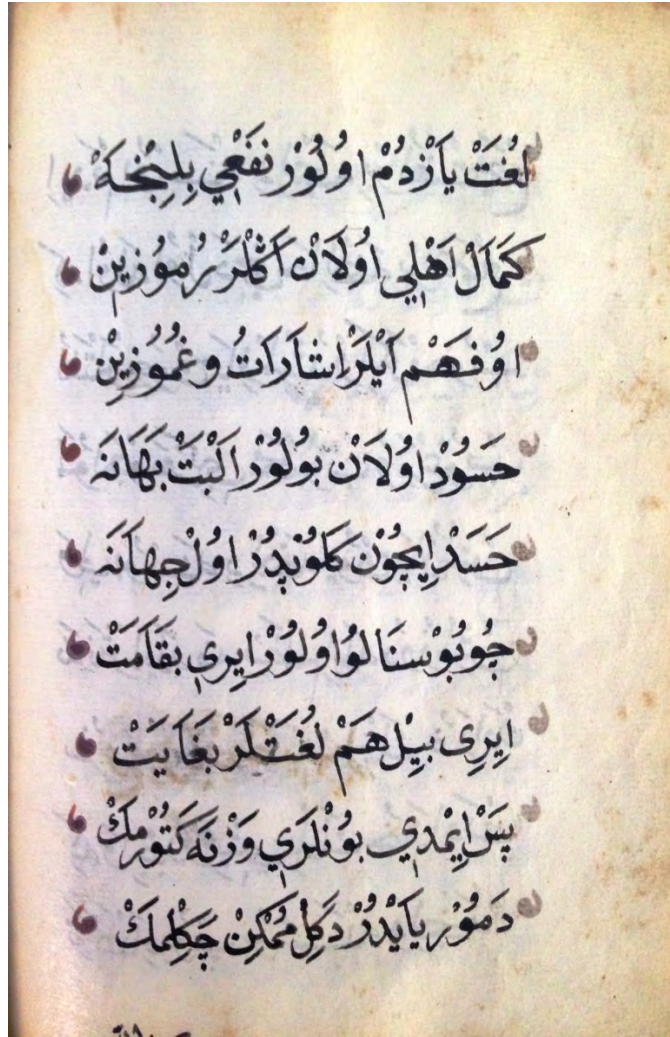 لُغَتْ يَازْدُمْ اوُلُوْرْ نَفْعِي بِلِيْنْجَهْ
كَمَالْ اَهْلِي اوُلَانْ اَكْلَرْ رُمُوْزِينْ
اوُ فَهْمْ اَيْلَرْ اِشَارَاتُ و غُمُوْزِيِنْ
حَسُوْدْ اوُلَانْ بُولُوْرْ اَلْبَتْ بَهَانَه
حَسَدْ اِيچُوْنْ كَلُوْبْدُرْ اوُلْ جِهَانَه
چُو بُوْسْنَالُو اوُلُوْرْ اِيرِي بقَامَتْ
اِيرِى بِيِلْ هَمْ لُغَتْلَرْ بغَايَتْ
پَسْ اِيْمْدِي بُوْنْلَرِي وَزْنَه كَتُوْرْمَكْ
دَمُوْر يَايْدُرْ دَكِلْ مُمْكِنْ چَكِلْمَكْ